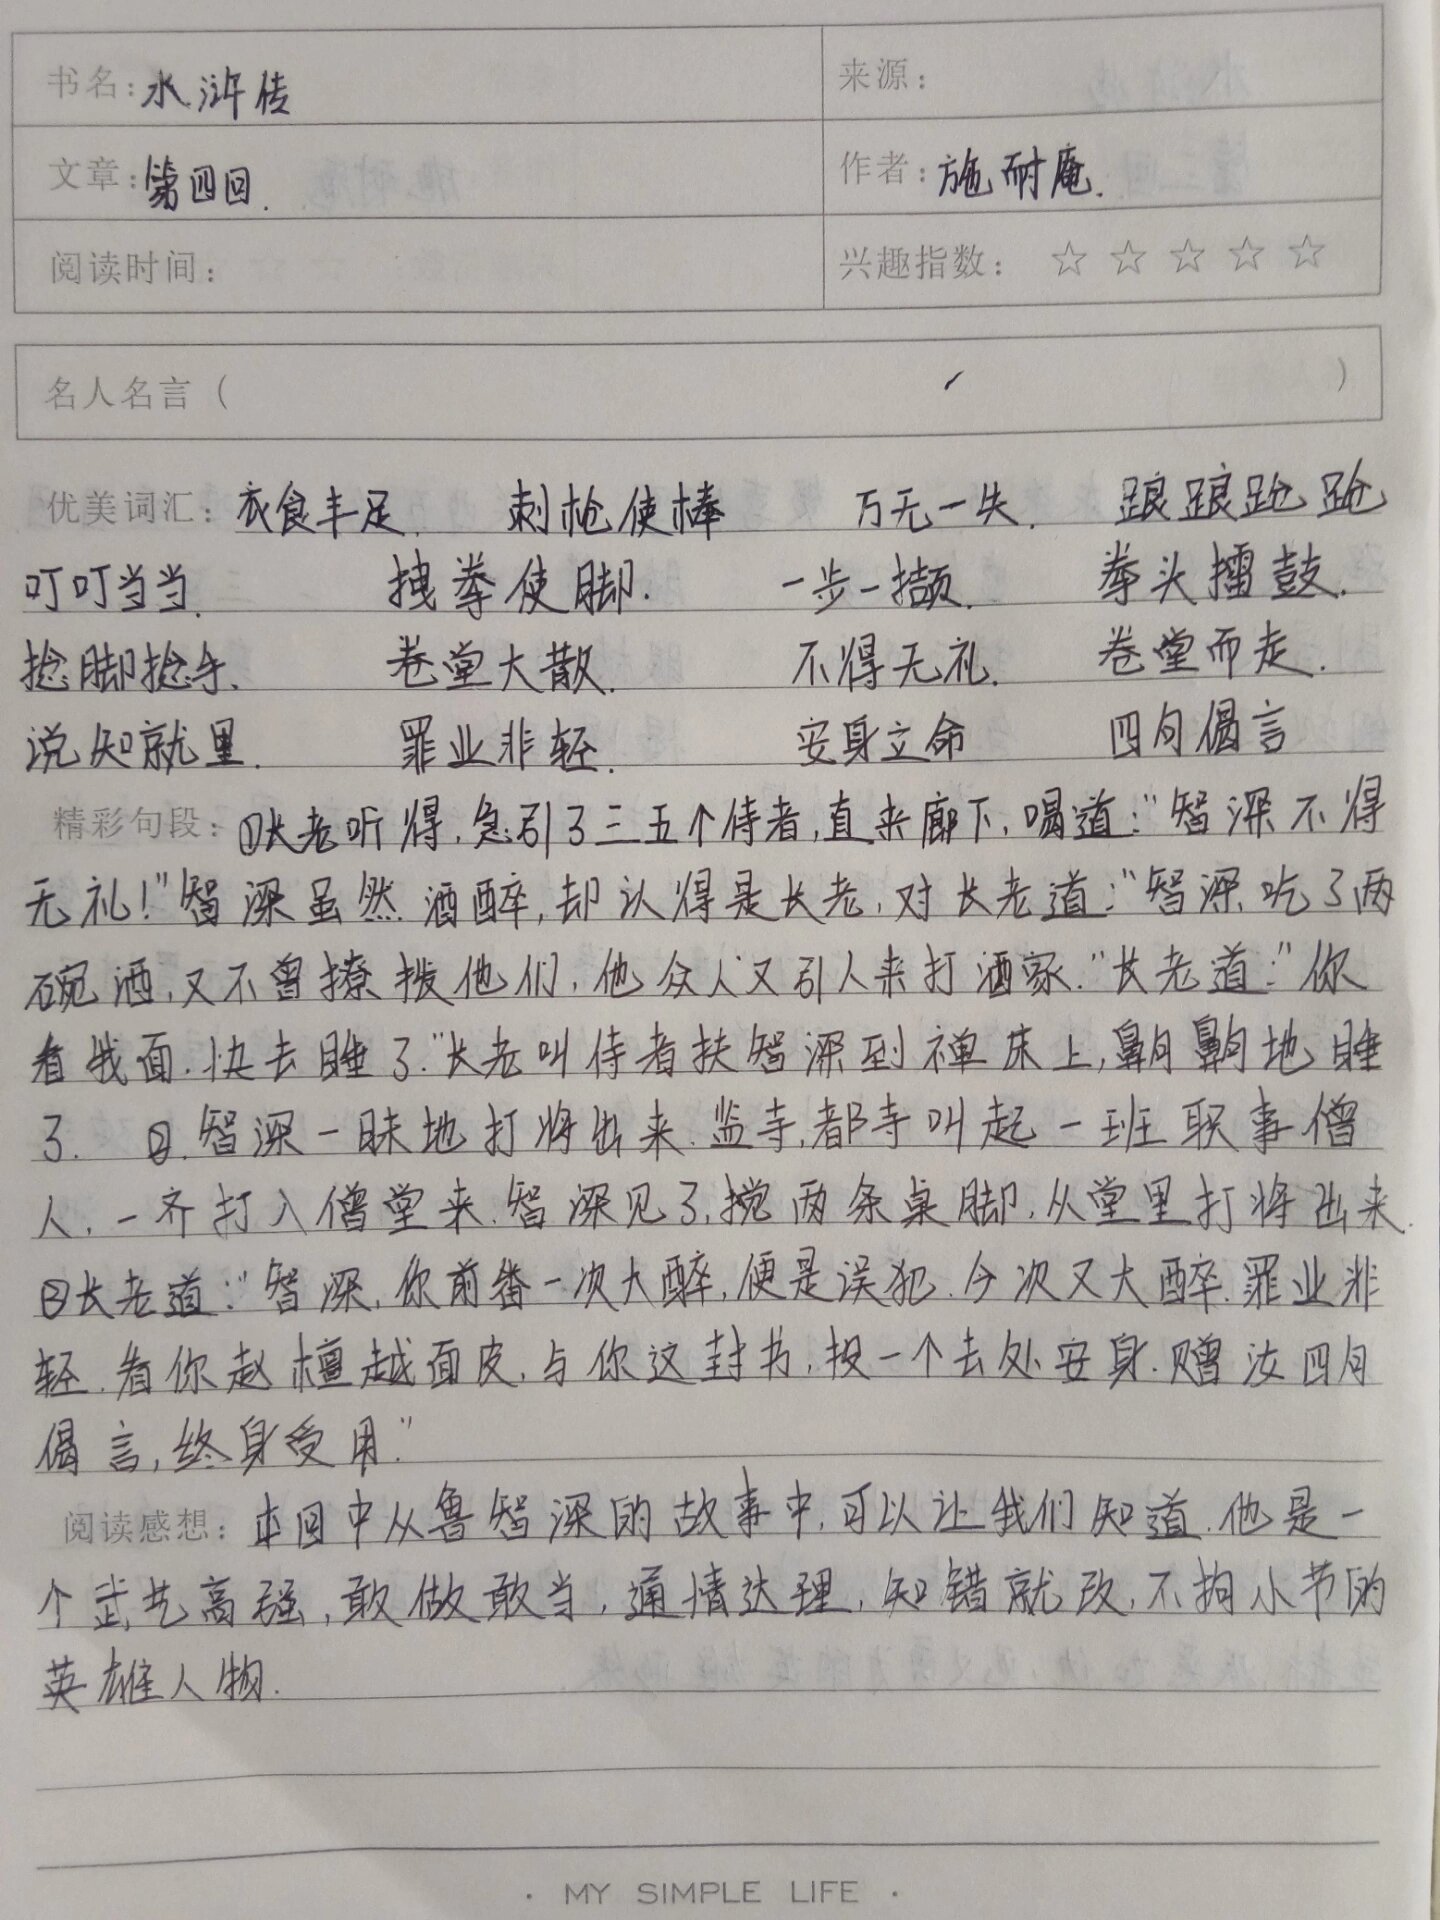 书名：水浒传 来源：
文章：第四回. 作者：施耐庵.
阅读时间： 兴趣指数：☆ ☆ ☆ ☆ ☆
名人名言（ ）
优美词汇：衣食丰足. 刺枪使棒 万无一失. 踉踉跄跄
叮叮当当. 拽拳使脚. 一步一攧. 拳头擂鼓.
捻脚捻手. 卷堂大散. 不得无礼. 卷堂而走.
说知就里. 罪业非轻. 安身立命 四句偈言
精彩句段：①长老听得,急引了三五个侍者,直来廊下,喝道："智深不得
无礼！"智深虽然酒醉,却认得是长老,对长老道："智深吃了两
碗酒,又不曾撩拨他们,他众人又引人来打洒家."长老道："你
看我面.快去睡了."长老叫侍者扶智深到禅床上,齁齁地睡
了. ②.智深一昧地打将出来.监寺,都寺叫起一班职事僧
人,一齐打入僧堂来.智深见了,搅两条桌脚,从堂里打将出来.
③长老道："智深,你前番一次大醉,便是误犯.今次又大醉.罪业非
轻.看你赵檀越面皮,与你这封书,投一个去处安身.赠汝四句
偈言,终身受用."
阅读感想：本回中从鲁智深的故事中,可以让我们知道.他是一
个武艺高强,敢做敢当,通情达理,知错就改,不拘小节的
英雄人物.
· MY SIMPLE LIFE ·